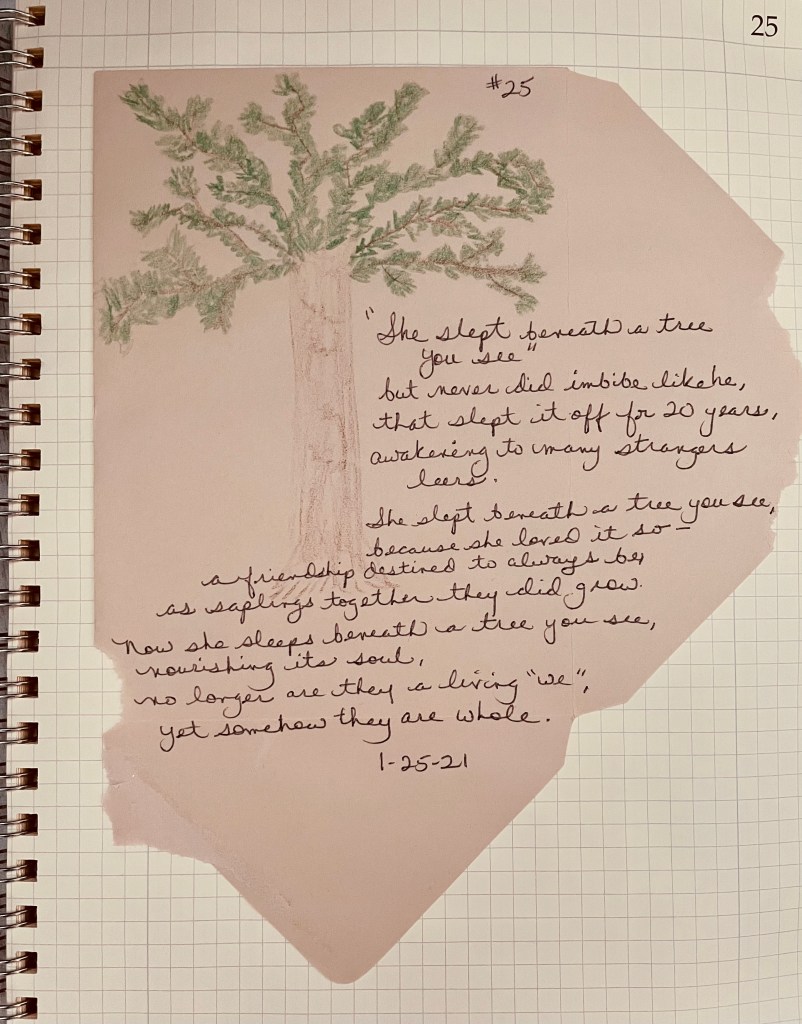 25
#25
"She slept beneath a tree
you see"
but never did imbibe like he,
that slept it off for 20 years,
awakening to many strangers
leers.
She slept beneath a tree you see,
because she loved it so –
a friendship destined to always be,
as saplings together they did grow.
Now she sleeps beneath a tree you see,
nourishing its soul,
no longer are they a living "we",
yet somehow they are whole.
1-25-21